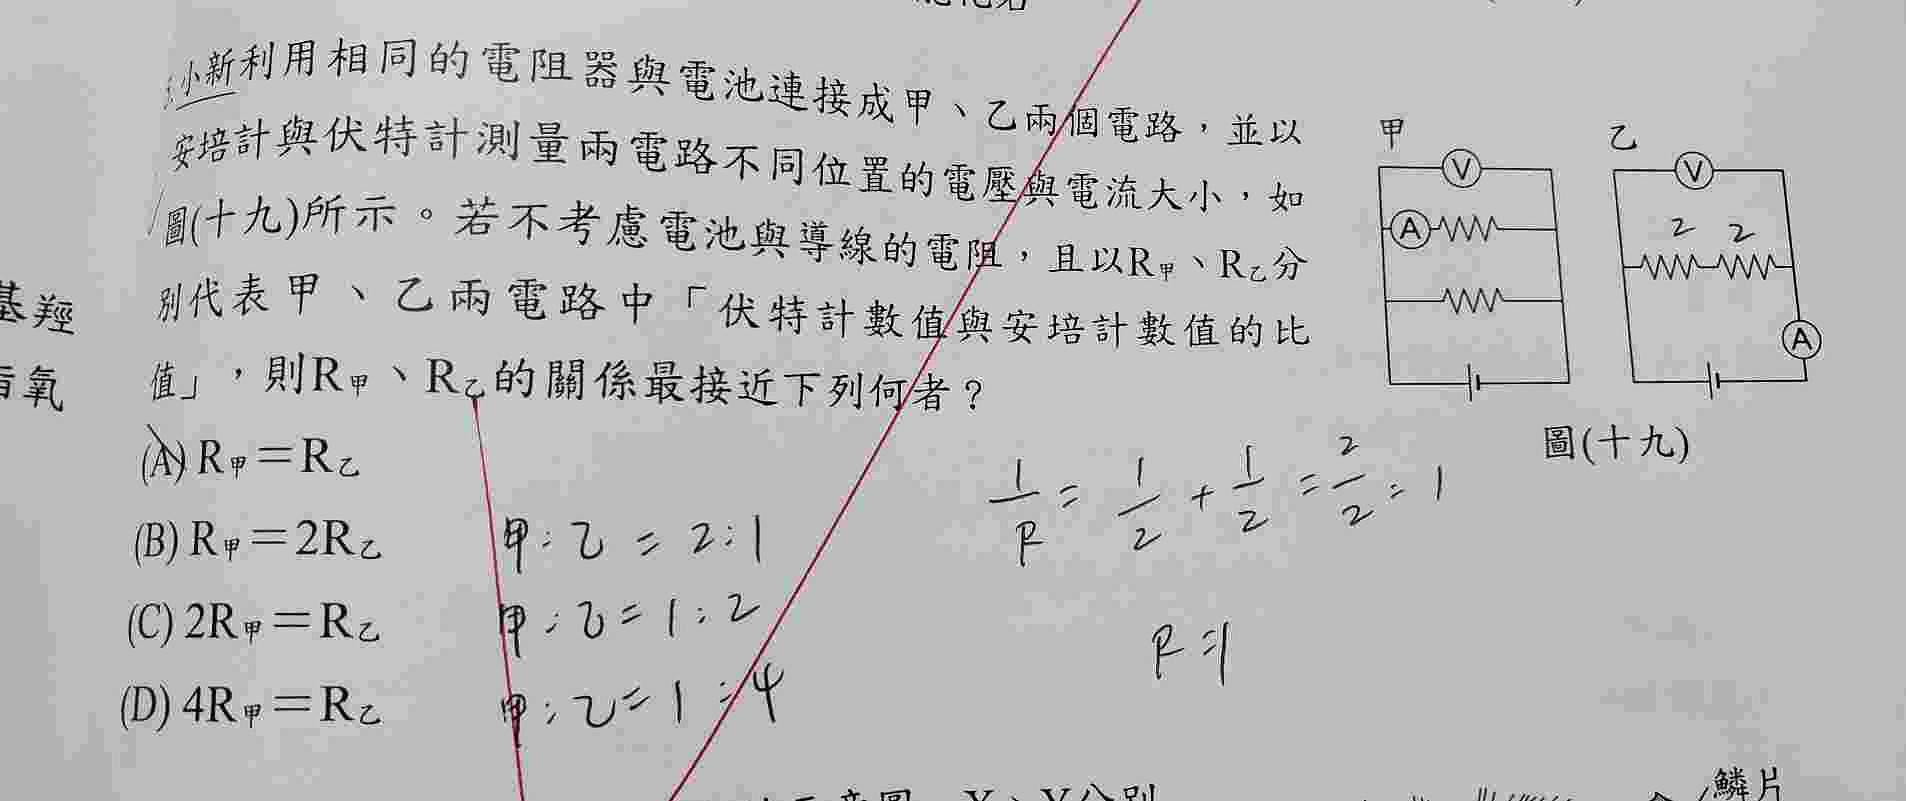 小新利用相同的電阻器與電池連接成甲、乙兩個電路，並以
安培計與伏特計測量兩電路不同位置的電壓與電流大小，如
圖(十九)所示。若不考慮電池與導線的電阻，且以R甲、R乙分
別代表甲、乙兩電路中「伏特計數值與安培計數值的比
值」，則R甲、R乙的關係最接近下列何者？
(A) R甲＝R乙
(B) R甲＝2R乙
(C) 2R甲＝R乙
(D) 4R甲＝R乙
甲:乙=2:1
甲:乙=1:2
甲:乙=1:4
甲
V
A
乙
V
2 2
A
圖(十九)
1/R = 1/2 + 1/2 = 2/2 = 1
R=1
基羥
氧
鱗片